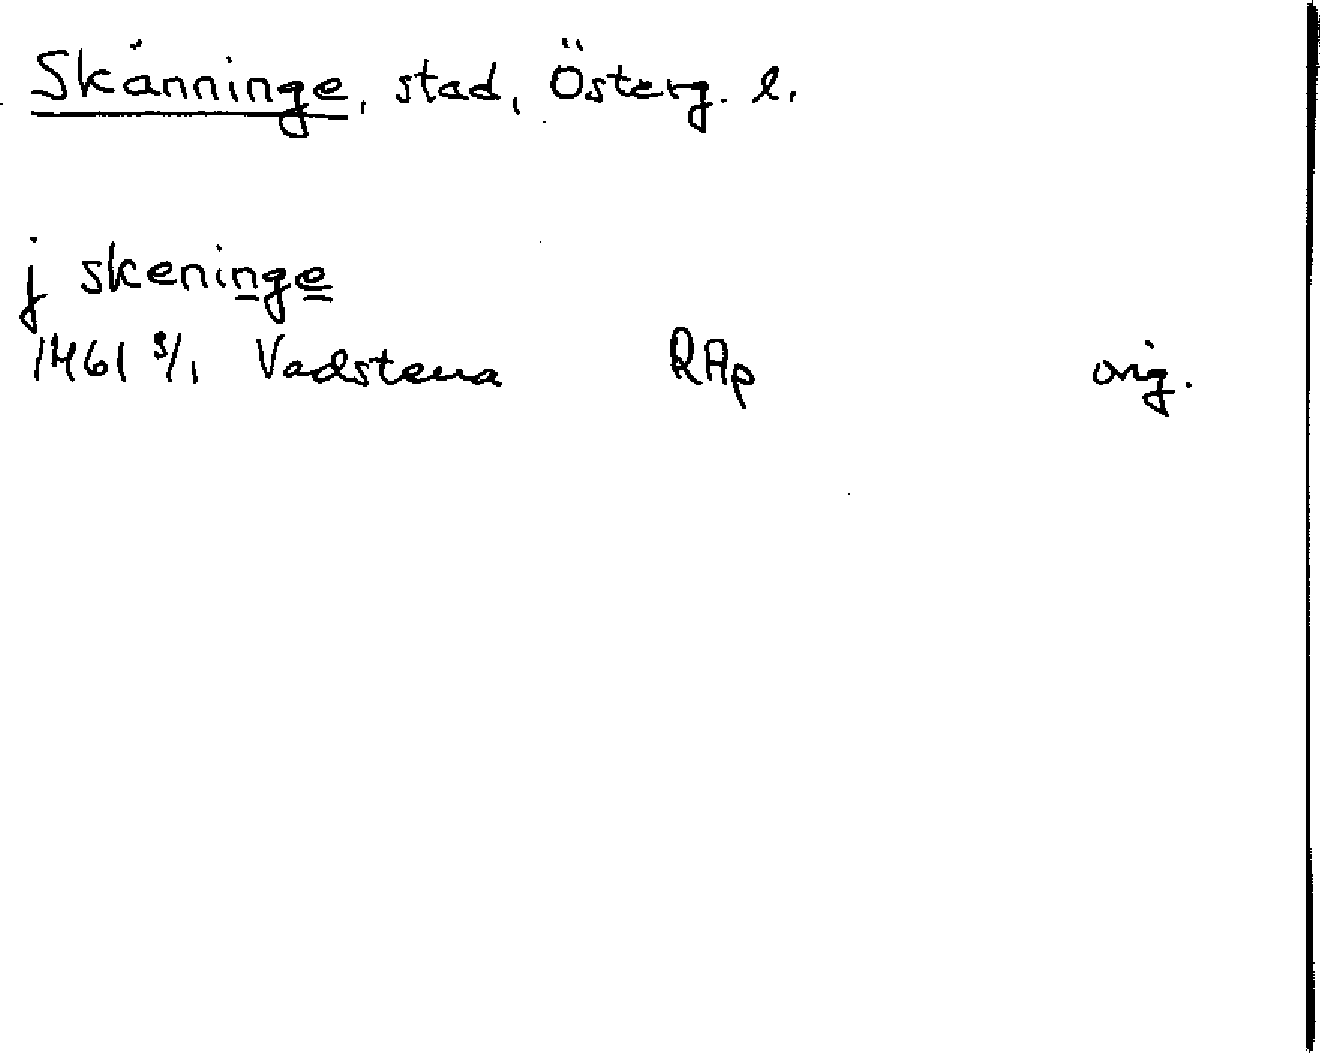 Skänninge, stad, Österg. l.
j skeninge
1461 3/1 Vadstena RAp orig.